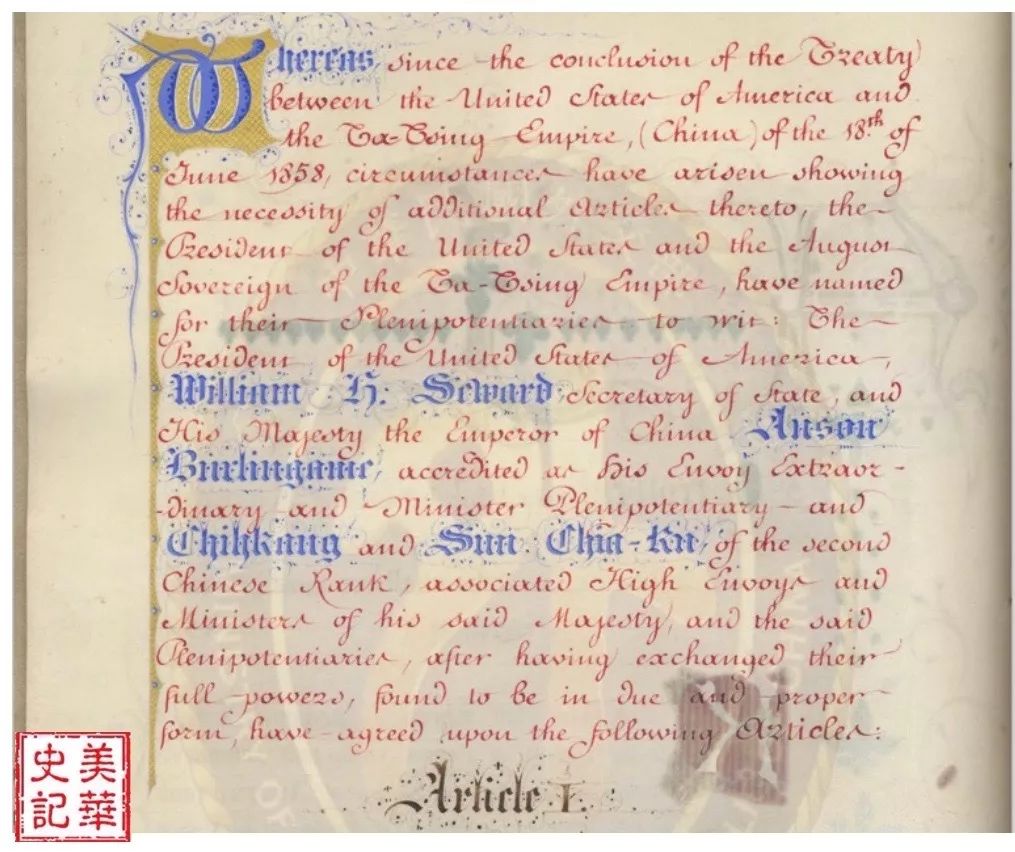 Whereas since the conclusion of the Treaty
between the United States of America and
the Ta-Tsing Empire, (China) of the 18th of
June 1858, circumstances have arisen showing
the necessity of additional Articles thereto, the
President of the United States and the August
Sovereign of the Ta-Tsing Empire, have named
for their Plenipotentiaries to wit: The
President of the United States of America,
William H. Seward Secretary of State, and
His Majesty the Emperor of China Anson
Burlingame, accredited as his Envoy Extraor-
-dinary and Minister Plenipotentiary and
Chihkang and Sun Chia-Ku, of the second
Chinese Rank, associated High Envoys and
Ministers of his said Majesty, and the said
Plenipotentiaries, after having exchanged their
full powers, found to be in due and proper
form, have agreed upon the following Articles:
Article I.
美華史記